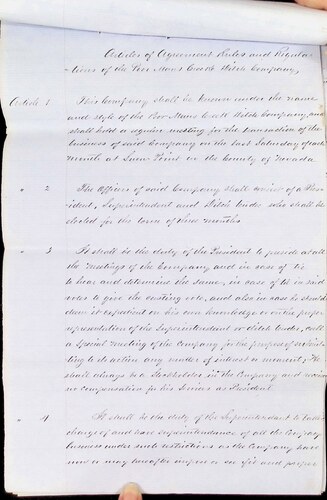 Articles of Agreement Rules and Regula-
tions of the Poor Mans Creek Ditch Company,
Article 1 This Company shall be known under the name
and style of the Poor Mans Creek Ditch Company, and
shall hold a regular meeting for the transaction of the
business of said Company on the last Saturday of each
month at Lime Point in the County of Nevada
" 2 The Officers of said Company shall consist of a Pres
ident, Superintendent and Ditch tender who shall be
elected for the term of three months
" 3 It shall be the duty of the President to preside at all
the Meetings of the Company and in case of tie
to hear and determine the same, in case of tie in said
votes to give the casting vote, and also in case he should
deem it expedient on his own knowledge or on the proper
representation of the Superintendent or ditch tender, call
a special meeting of the Company for the purpose of
ting to do action any matter of interest or moment, He
shall always be a Stockholder in the Company and receive
no compensation for his Services as President
" 4 It shall be the duty of the Superintendent to take
charge of and have superintendence of all the Company
business under such restrictions as the Company have
now or may hereafter impose or see fit and proper